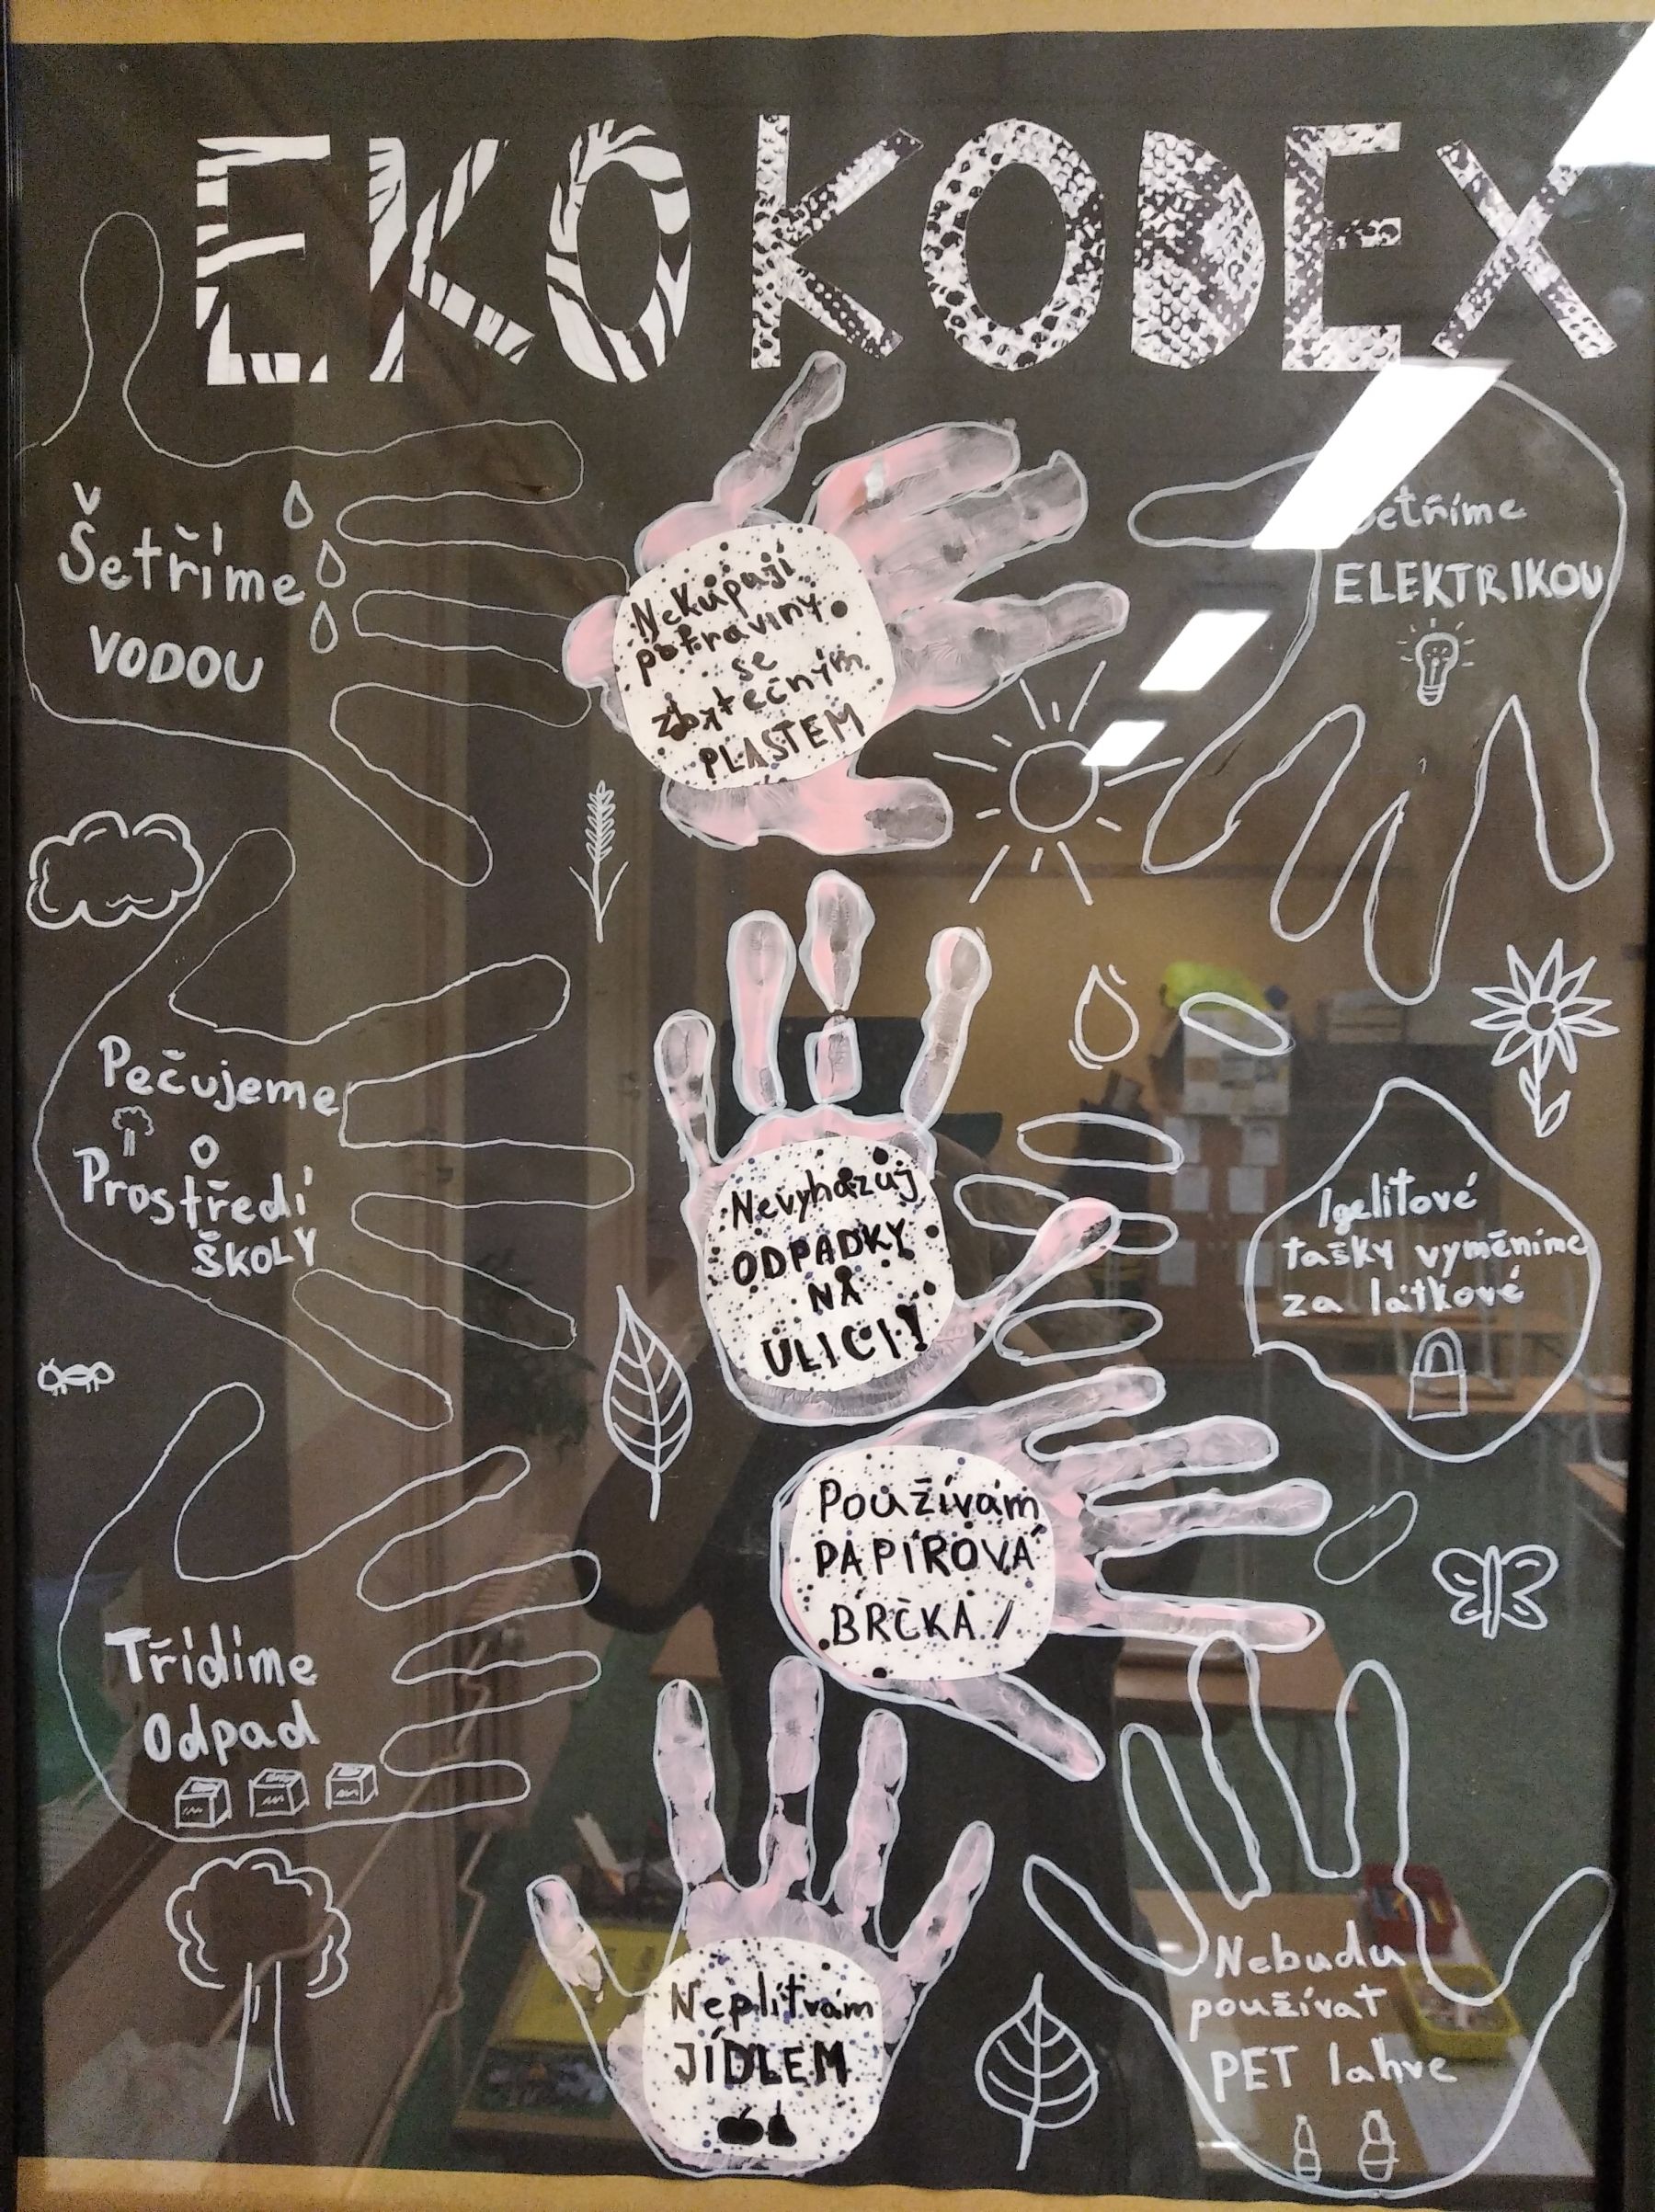 EKOKODEX
Šetříme
VODOU
Nekupuji
potraviny
se
zbytečným
PLASTEM
Šetříme
ELEKTRIKOU
Pečujeme
o
Prostředí
ŠKOLY
Nevyhazuj
ODPADKY
NA
ULICI!
Igelitové
tašky vyměníme
za látkové
Používám
PAPÍROVÁ
BRČKA!
Třídíme
Odpad
Neplítvám
JÍDLEM
Nebudu
používat
PET lahve